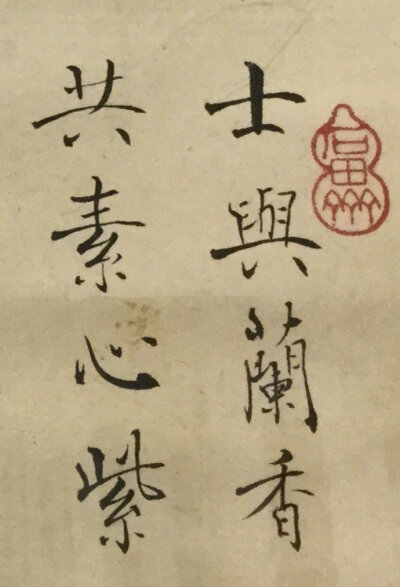 士與蘭香
共素心紫